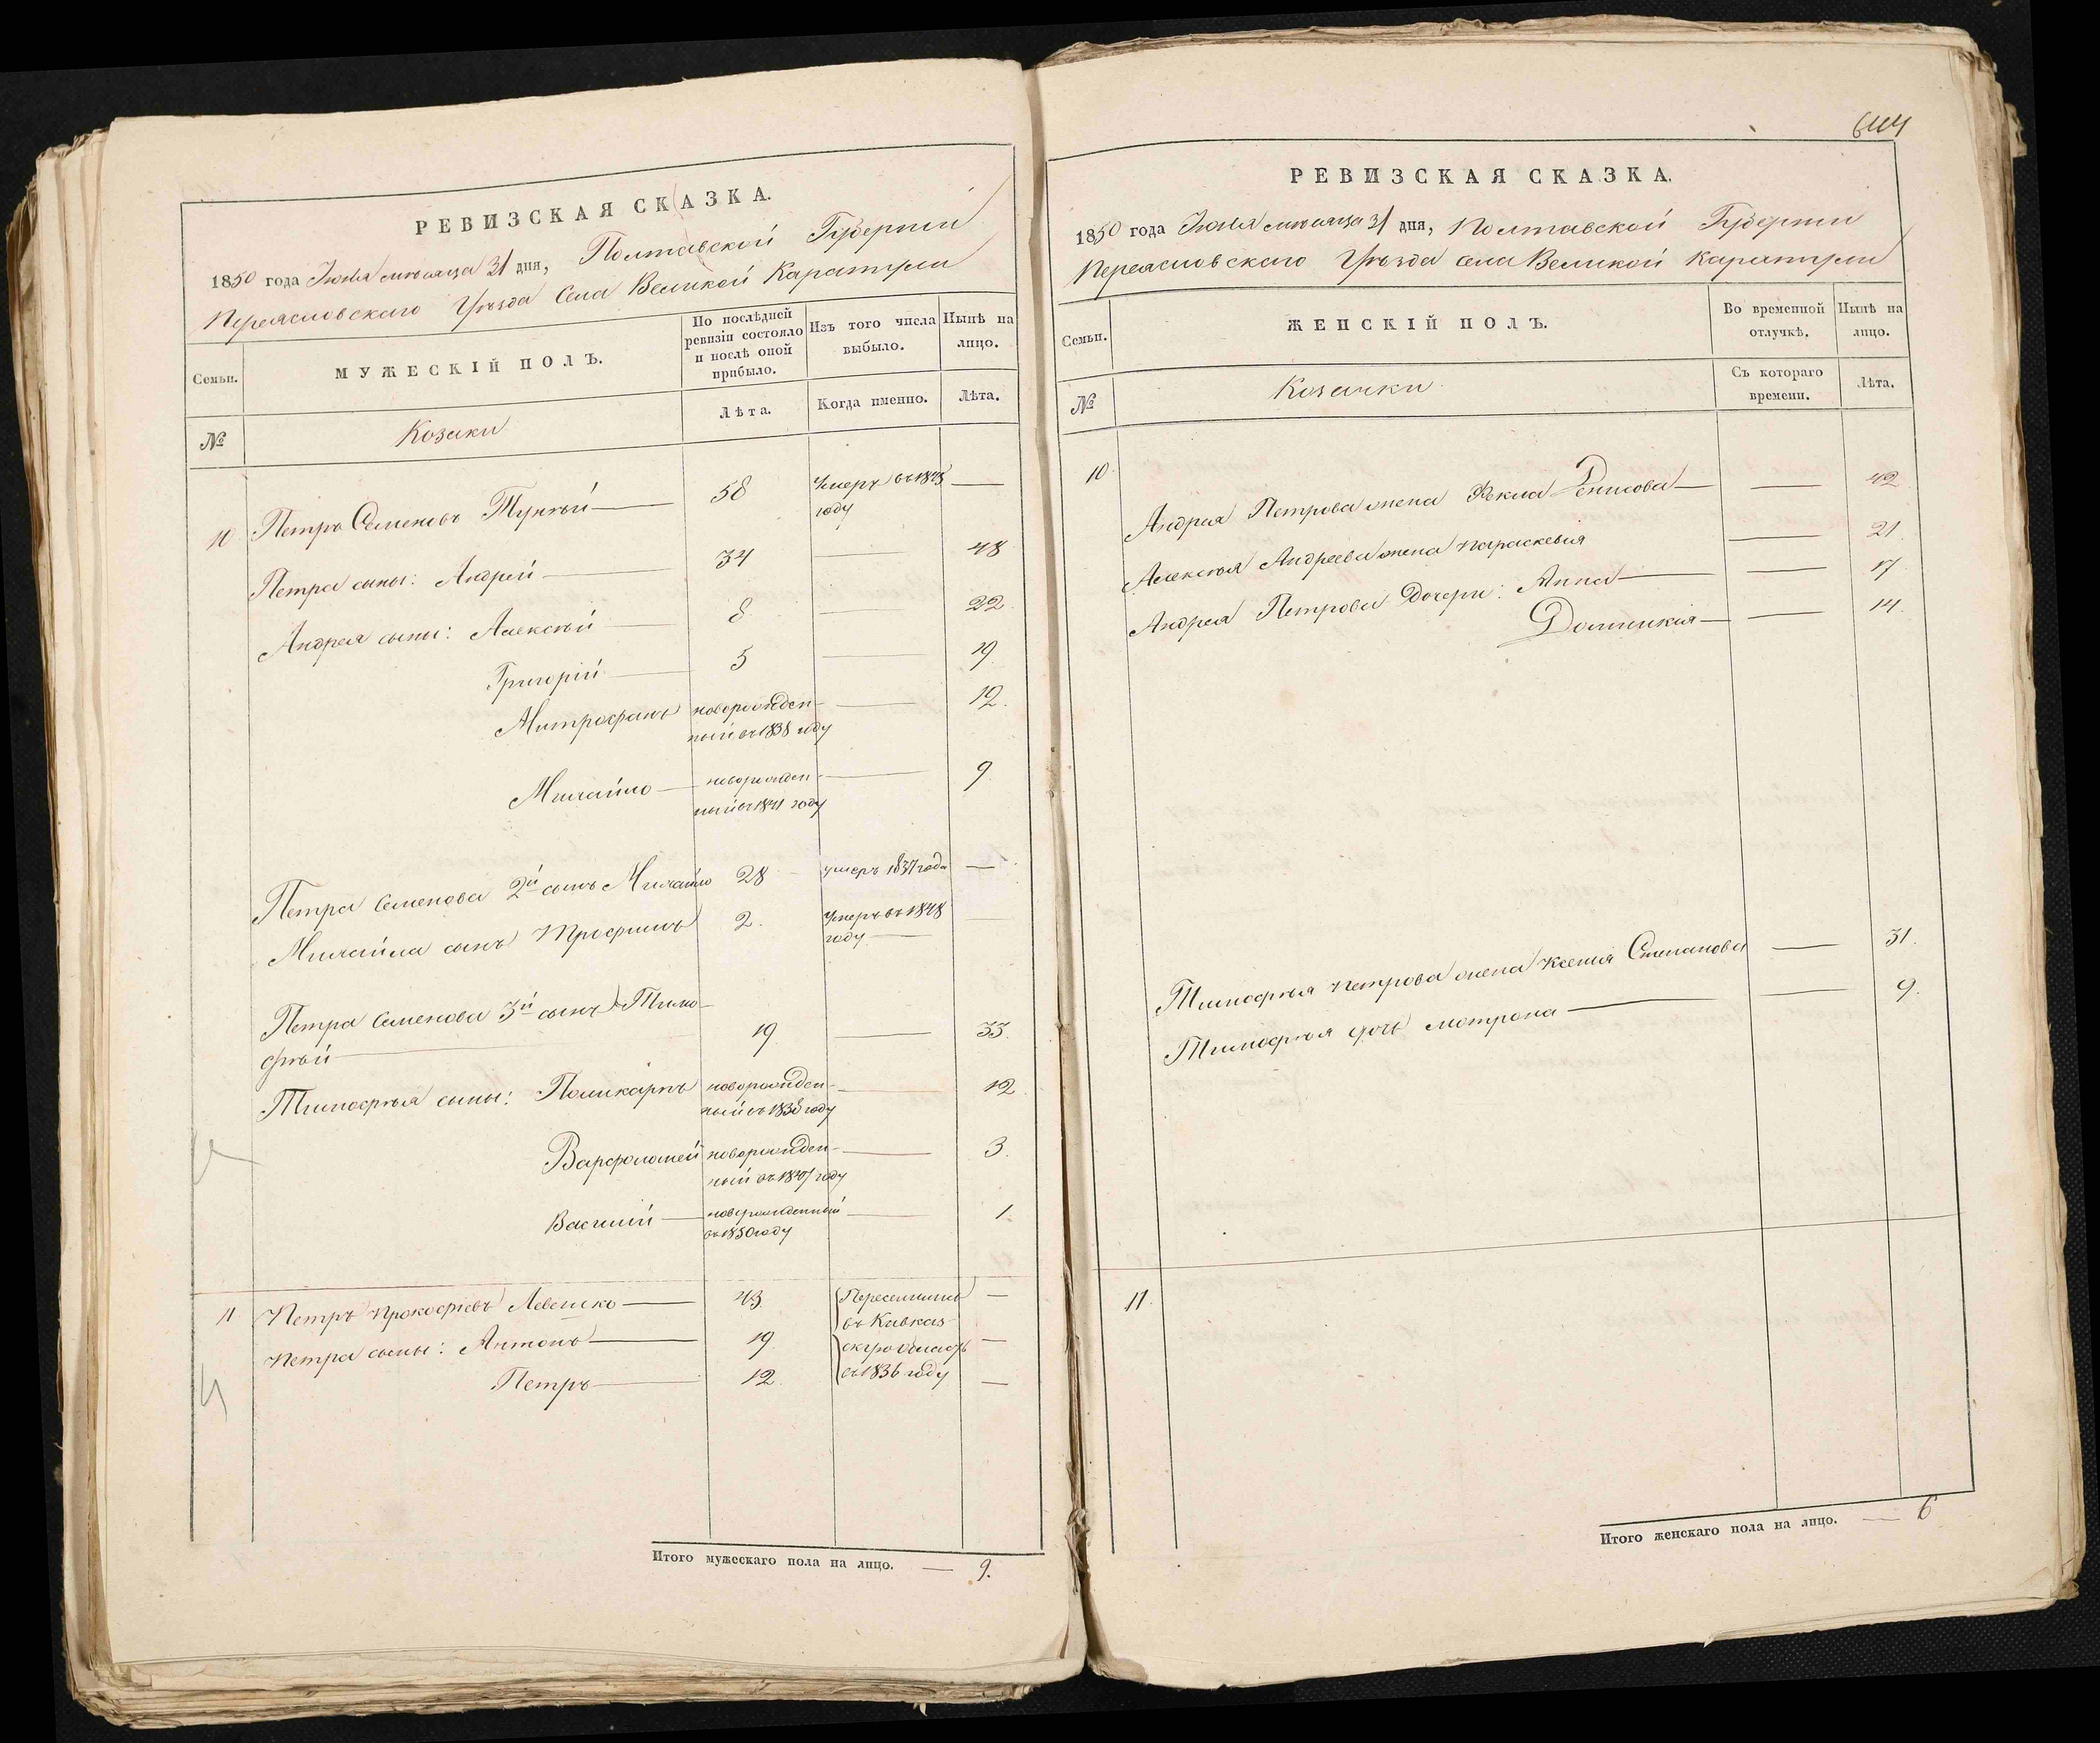 РЕВИЗСКАЯ СКАЗКА.
1850 года Іюля мѣсяца 31 дня, Полтавской Губерніи
Переяславского Уѣзда Села Великой Каратули
Семьи.
МУЖЕСКІЙ ПОЛЪ.
По послѣдней ревизіи состояло и послѣ оной прибыло.
Изъ того числа выбыло.
Нынѣ на лицо.
№
Козаки
Лѣта.
Когда именно.
Лѣта.
10 Петръ Семеновъ 58 Умеръ въ 1843 году —
Петра сыны: Андрей — 34 — 48
Андрея сыны: Алексѣй — 8 — 22.
Григорій — 5 — 19.
Митрофанъ новорожденный въ 1838 году — 12.
Михайло — новорожденный въ 1841 году — 9
Петра Семенова 2й сынъ Михайло 28 умеръ 1837 года —
Михайла сынъ Трофимъ 2. Умеръ въ 1848 году —
Петра Семенова 3й сынъ Тимофѣй — 19. — 33.
Тимофѣя сыны: Поликарпъ новорожденный въ 1838 году — 12
Варфоломей новорожденный въ 1847 году — 3.
Василій — новорожденный въ 1850 году — 1.
11 Петръ Прокофіевъ Левешко — 43. Переселились —
Петра сыны: Антонъ — 19. въ Кавказскую область —
Петръ — 12. въ 1836 году —
Итого мужескаго пола на лицо. — 9.
644
РЕВИЗСКАЯ СКАЗКА.
1850 года Іюля мѣсяца 31 дня, Полтавской Губерніи
Переясловского Уѣзда села Великой Каратули
Семьи.
ЖЕНСКІЙ ПОЛЪ.
Во временной отлучкѣ.
Нынѣ на лицо.
№
Козачки
Съ котораго времени.
Лѣта.
10.
Андрея Петрова жена Фекла Денисова — — 42.
Алексѣя Андреева жена Параскевія — 21.
Андрея Петрова дочери: Анна — — 17.
Домникія — — 14.
Тимофѣя Петрова жена Ксенія Степанова — 31.
Тимофѣя дочь Мотрона — — 9.
11.
Итого женскаго пола на лицо. — 6